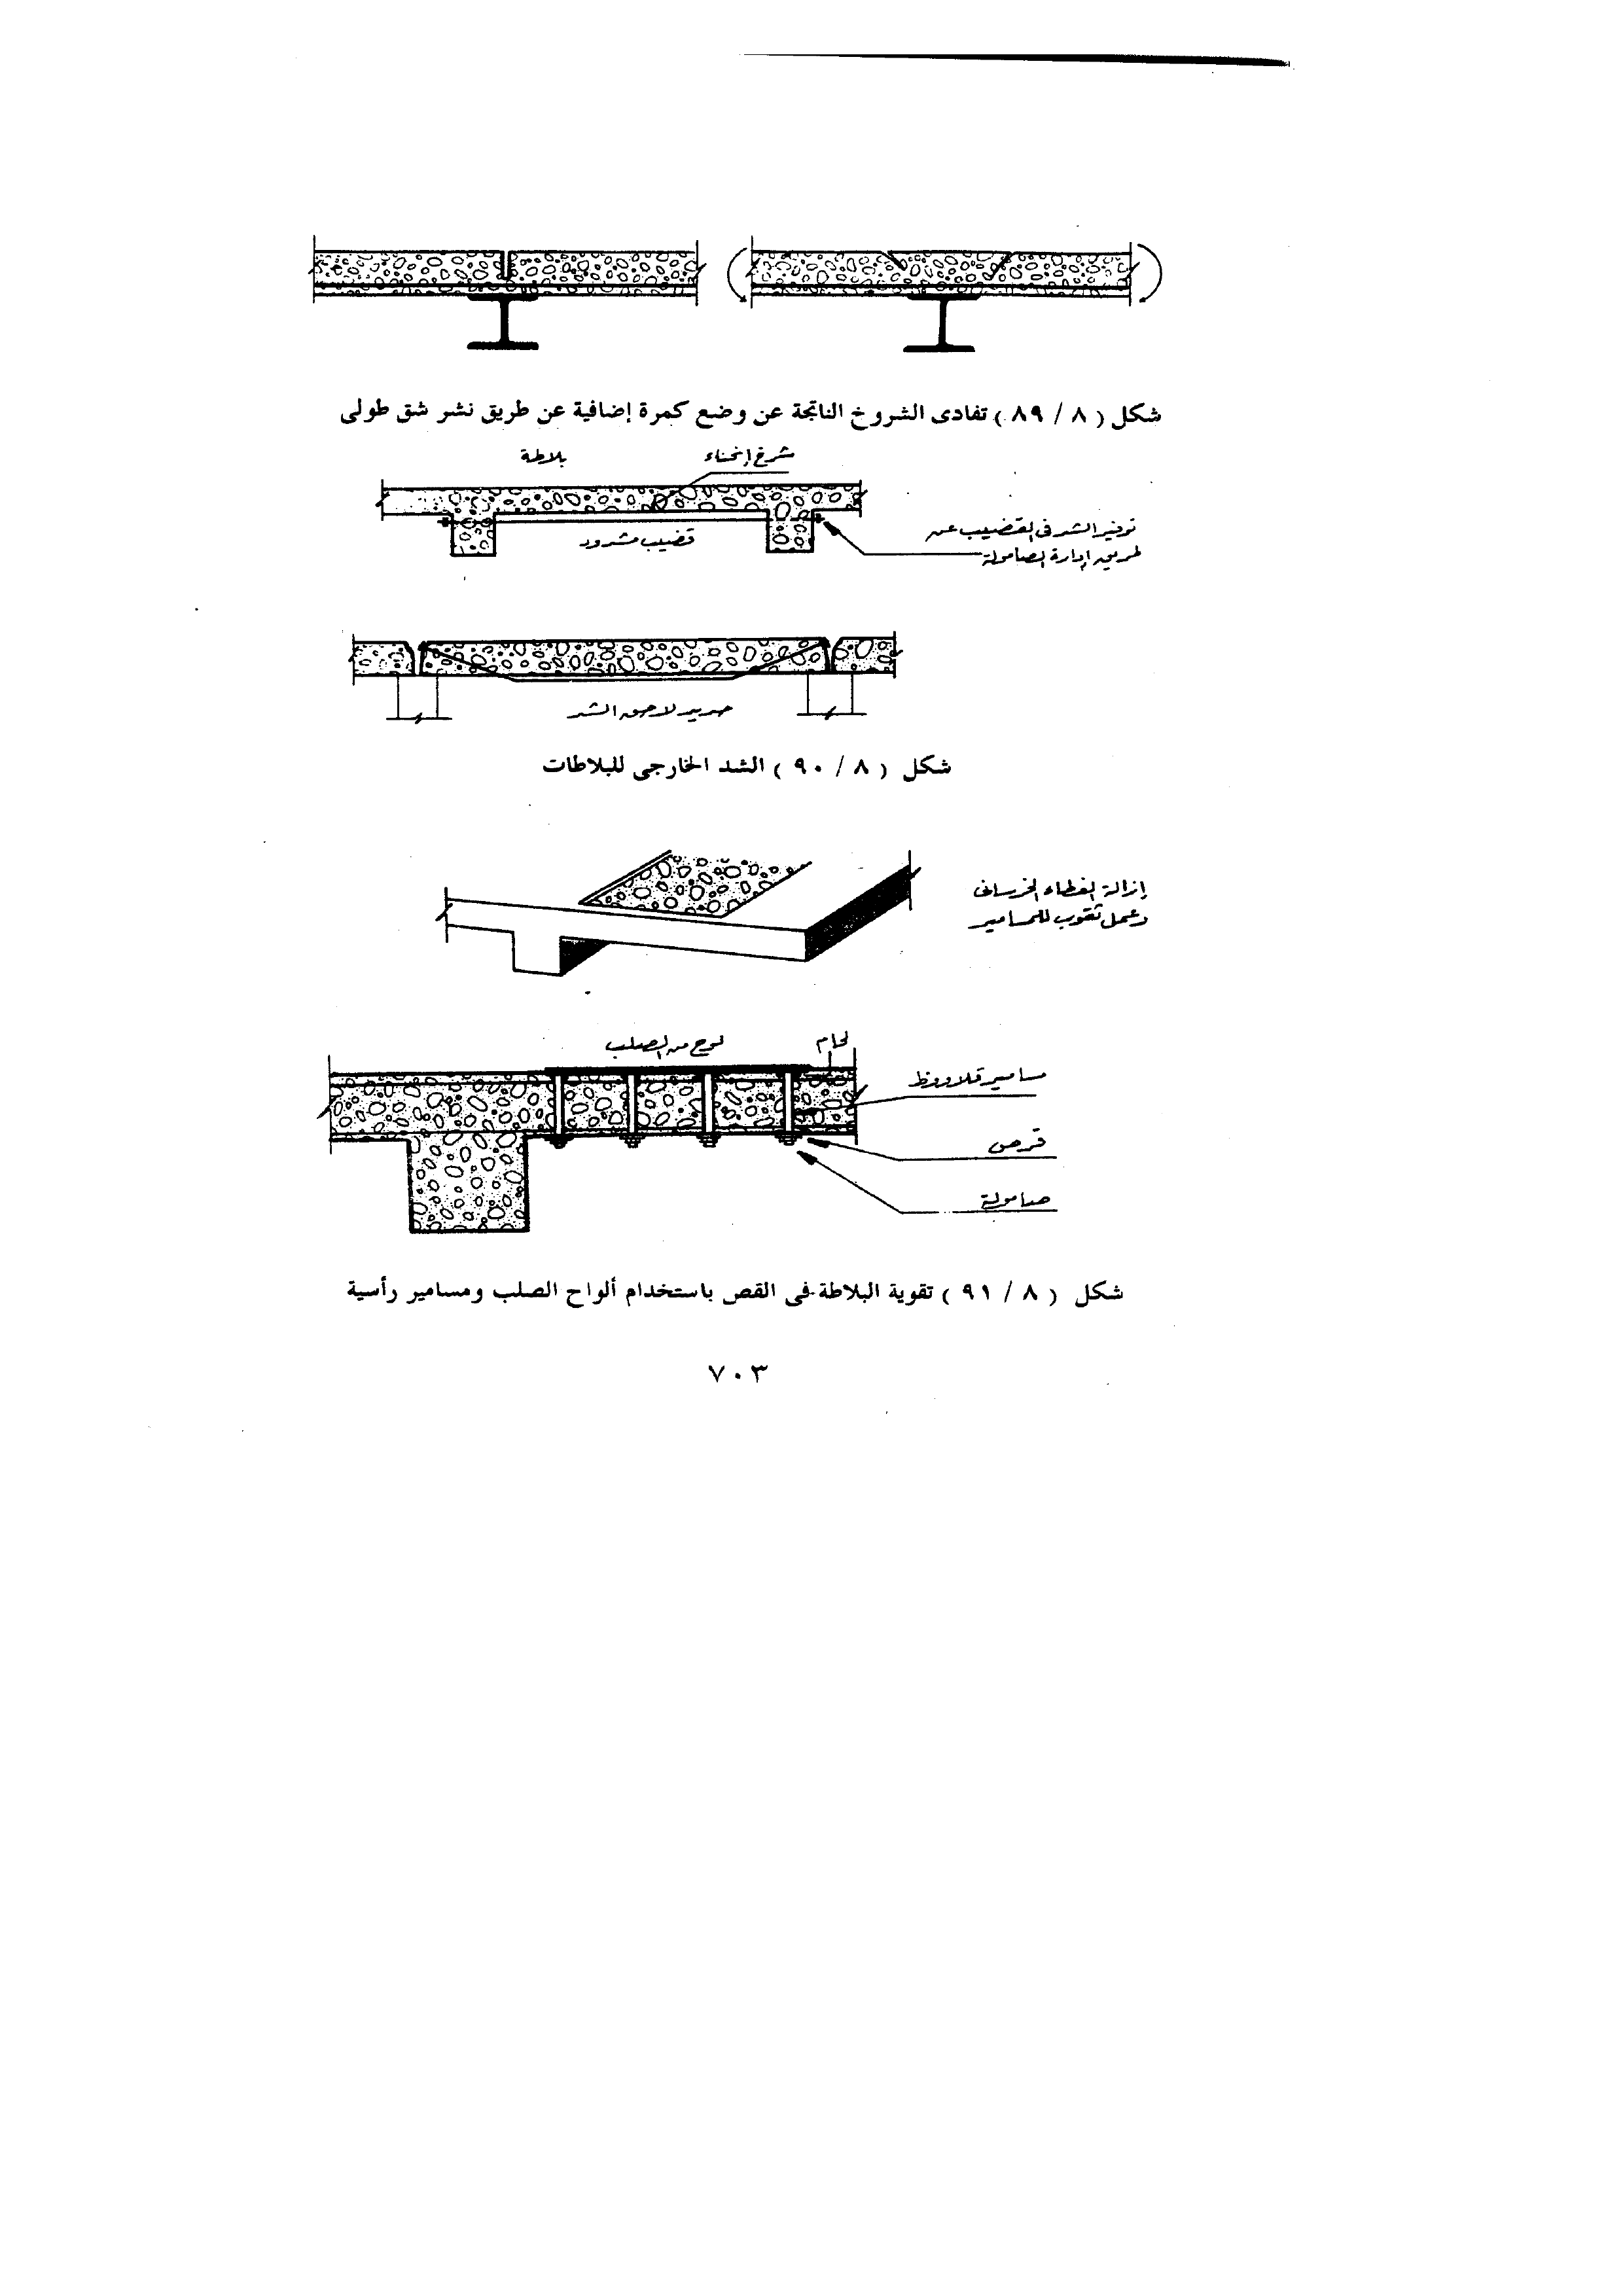 شكل ( ٨ / ٨٩ ) تفادى الشروخ الناتجة عن وضع كمرة إضافية عن طريق نشر شق طولى
شرخ إنحناء
بلاطة
توفير الشد فى القضيب عن
طريق إدارة الصامولة
قضيب مشدود
حديد لاحق الشد
شكل ( ٨ / ٩٠ ) الشد الخارجى للبلاطات
إزالة الغطاء الخرسانى
وعمل ثقوب للمسامير
لحام
لوح من الصلب
مسامير قلاووظ
قرص
صامولة
شكل ( ٨ / ٩١ ) تقوية البلاطة فى القص باستخدام ألواح الصلب ومسامير رأسية
٧٠٣